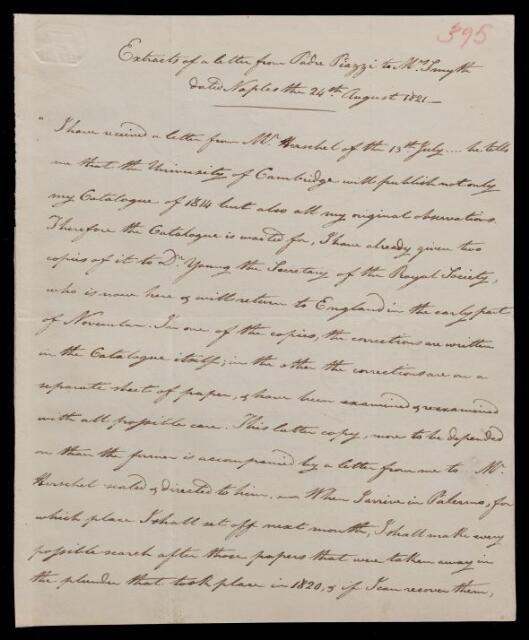 395
Extracts of a letter from Padre Piazzi to Mr. Smyth
dated Naples the 24th. August 1821 —
"I have received a letter from Mr. Herschel of the 13th July .... he tells
me that the University of Cambridge will publish not only
my Catalogue of 1814 but also all my original observations.
Therefore the Catalogue is waited for, I have already given two
copies of it to Dr. Young the Secretary of the Royal Society,
who is now here & will return to England in the early part
of November. In one of the copies, the corrections are written
in the Catalogue itself; in the other the corrections are on a
separate sheet of paper, & have been examined & reexamined
with all possible care. This latter copy, more to be depended
on than the former is accompanied by a letter from me to Mr.
Herschel sealed & directed to him. — When I arrive in Palermo, for
which place I shall set off next month, I shall make every
possible search after those papers that were taken away in
the plunder that took place in 1820, & if I can recover them,